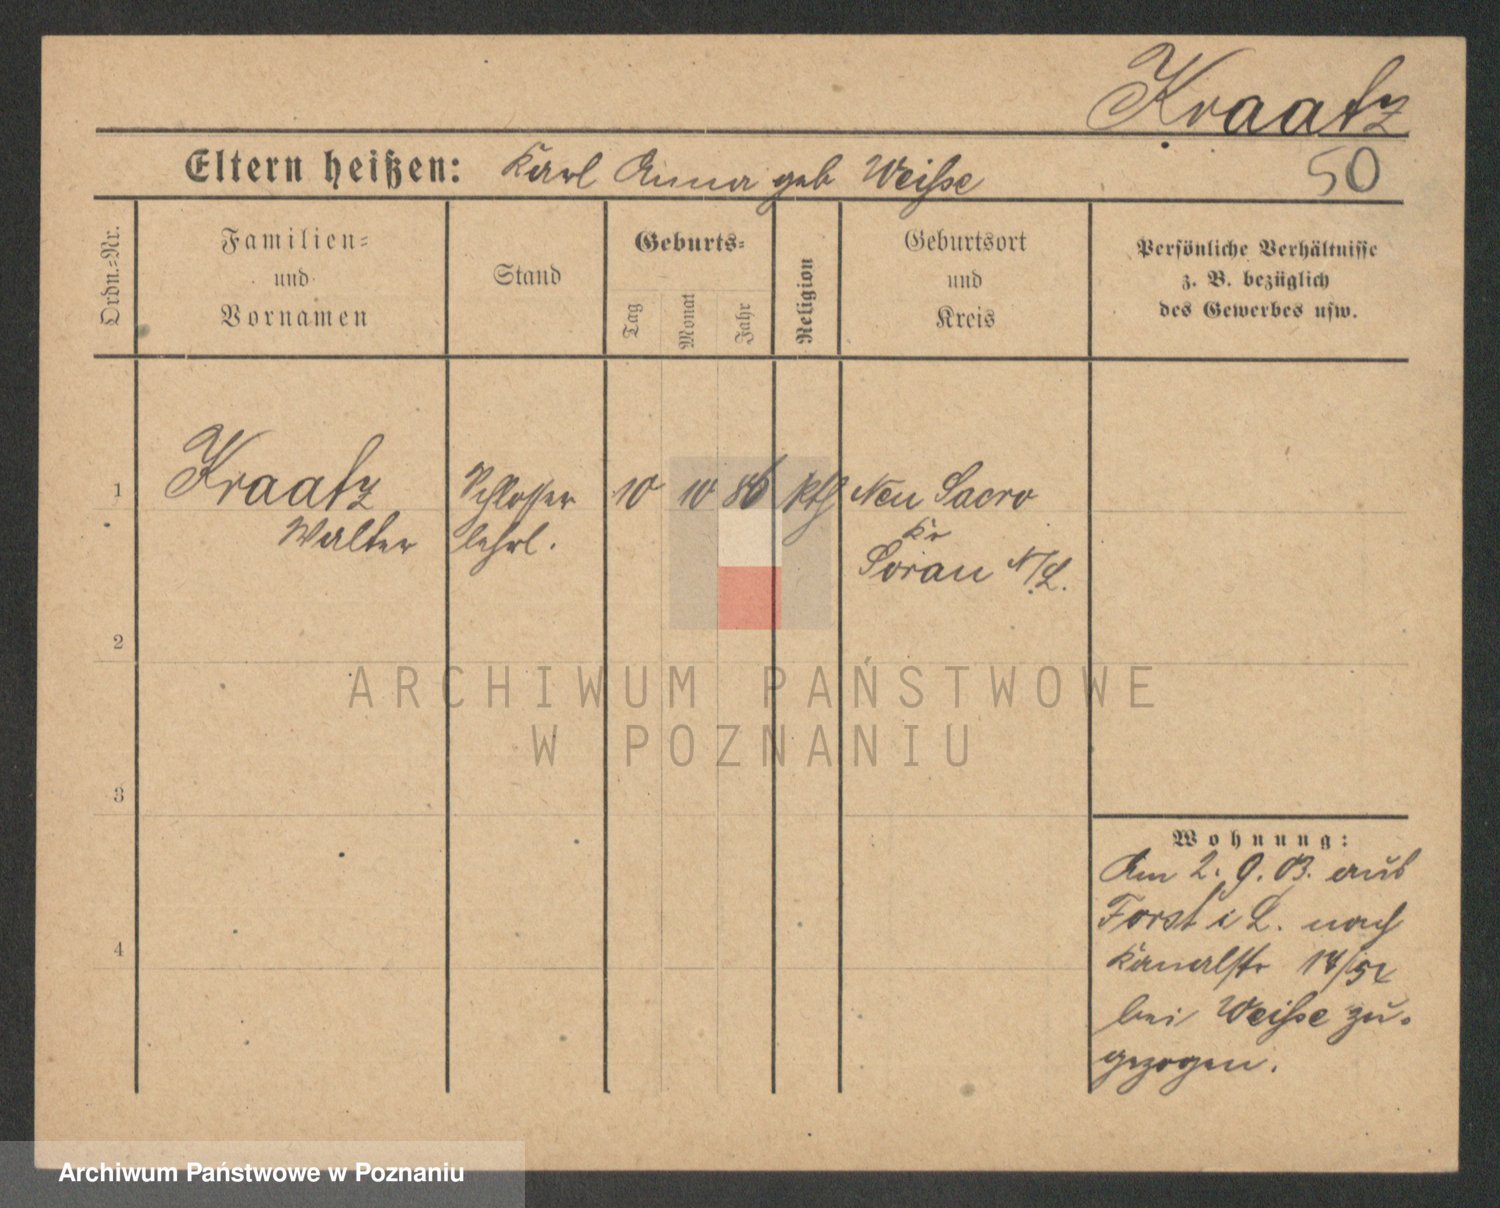 Kraatz
Eltern heißen: Karl Anna geb Weiße
50
Ordn.-Nr.
Familien-
und
Vornamen
Stand
Geburts-
Tag
Monat
Jahr
Religion
Geburtsort
und
Kreis
Persönliche Verhältnisse
z. B. bezüglich
des Gewerbes usw.
1 Kraatz Schlosser 10 10 86 Kth Neu Sacro
Walter lehrl. Kr
Sorau N/L.
2
3
4
Wohnung:
Am 2. 9. 03. aus
Forst i L. nach
Kanalstr
bei Weiße zu-
gezogen.
ARCHIWUM PAŃSTWOWE
W POZNANIU
Archiwum Państwowe w Poznaniu